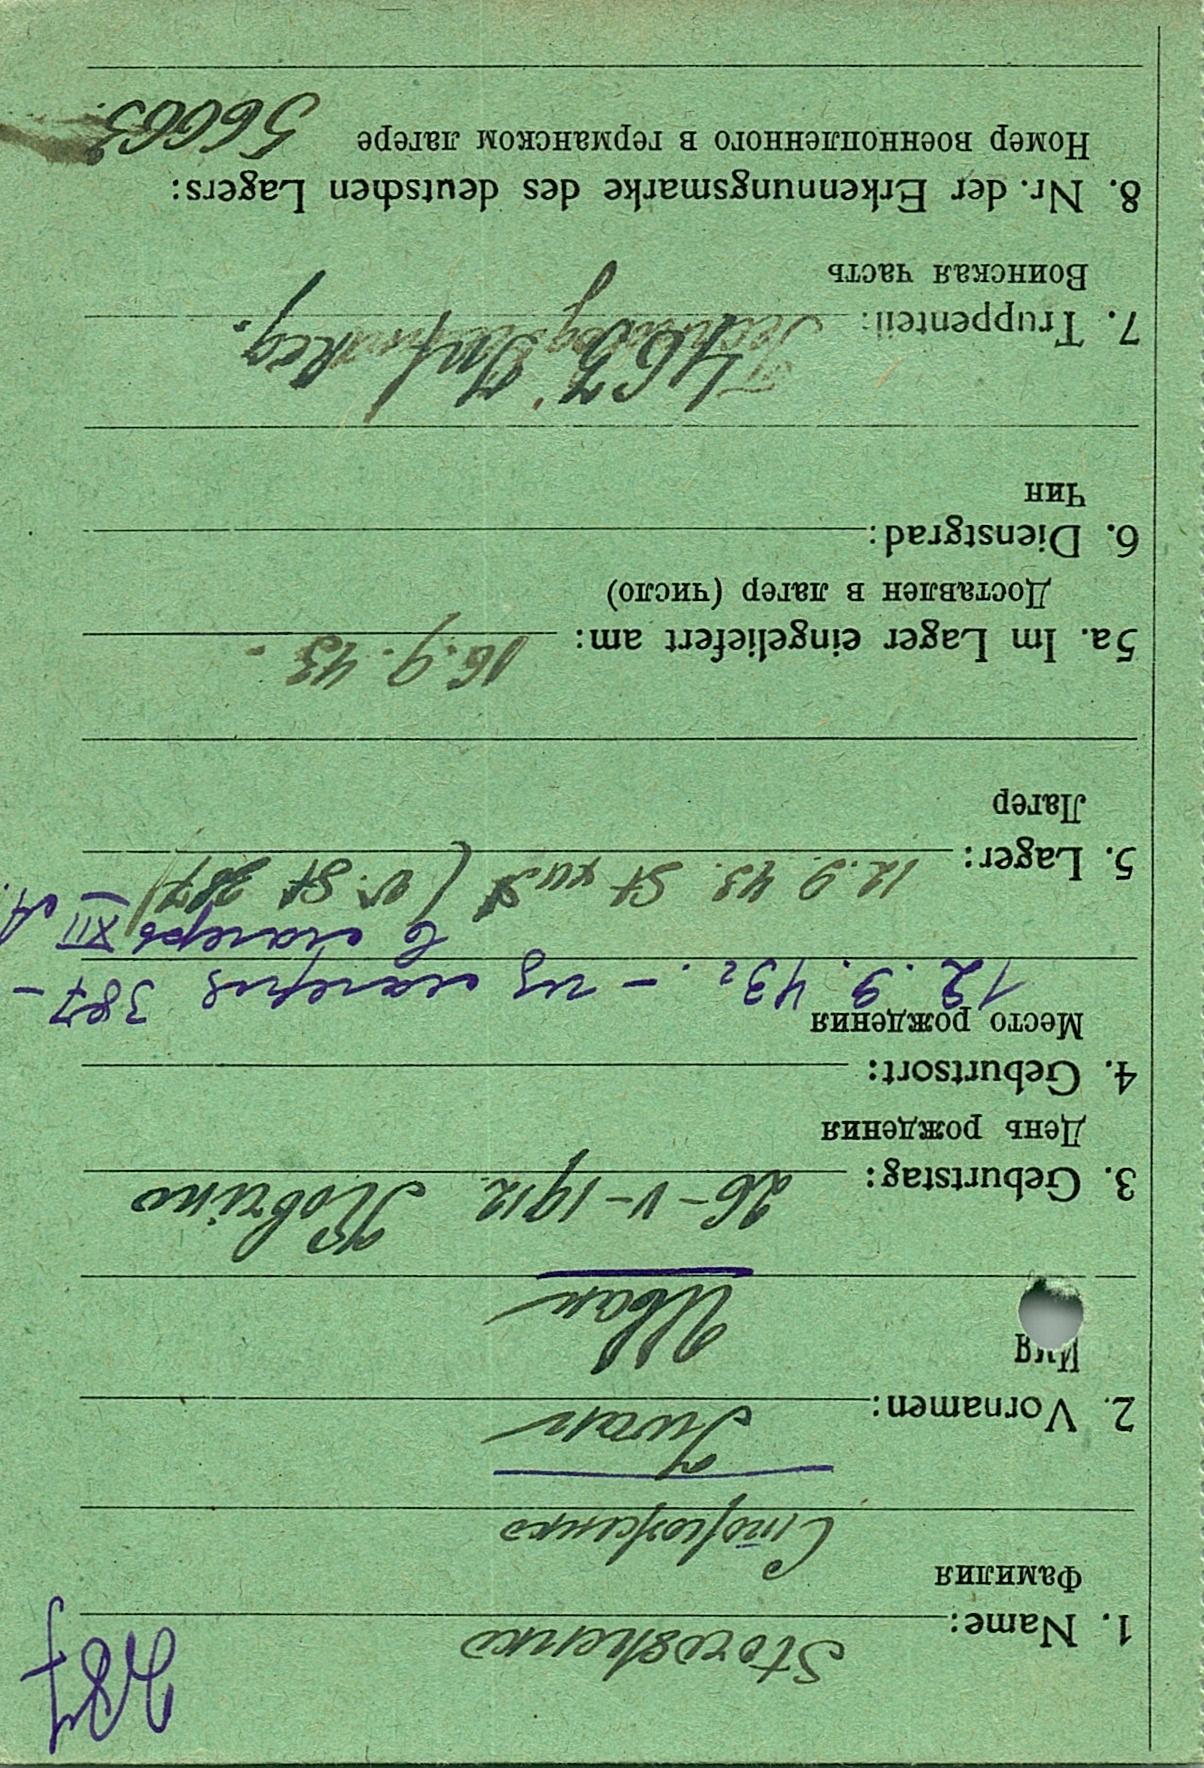 287
1. Name: Storoshenko
Фамилия
Стороженко
2. Vornamen: Iwan
Имя
Иван
3. Geburtstag: 26-V-1912
День рождения
4. Geburtsort:
Место рождения
12.9.43г. - из лагеря 387 -
в лагерь XII A.
5. Lager: 12.9.43. St XII A (v. St 387)
Лагерь
5a. Im Lager eingeliefert am: 16.9.43.
Доставлен в лагер (число)
6. Dienstgrad:
Чин
7. Truppenteil:
467. Inf. Reg.
Воинская часть
8. Nr. der Erkennungsmarke des deutschen Lagers:
Номер военнопленного в германском лагере 56663.